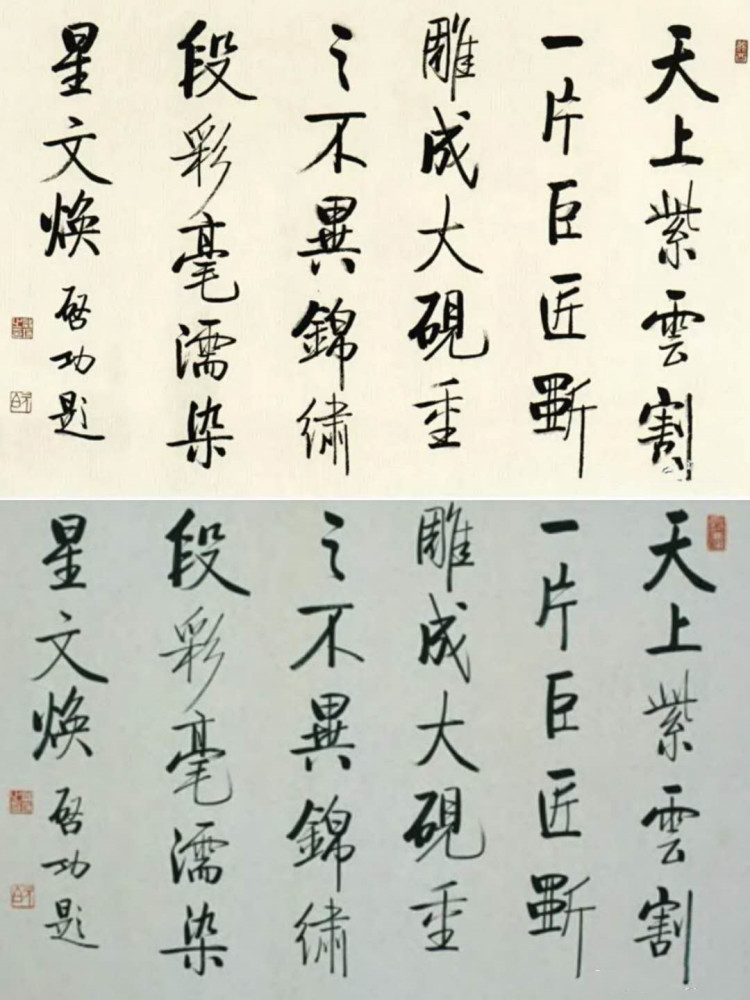 天上紫雲割
一片巨匠斲
雕成大硯重
之不異錦繡
段彩毫濡染
星文煥
啓功題
天上紫雲割
一片巨匠斲
雕成大硯重
之不異錦繡
段彩毫濡染
星文煥
啓功題